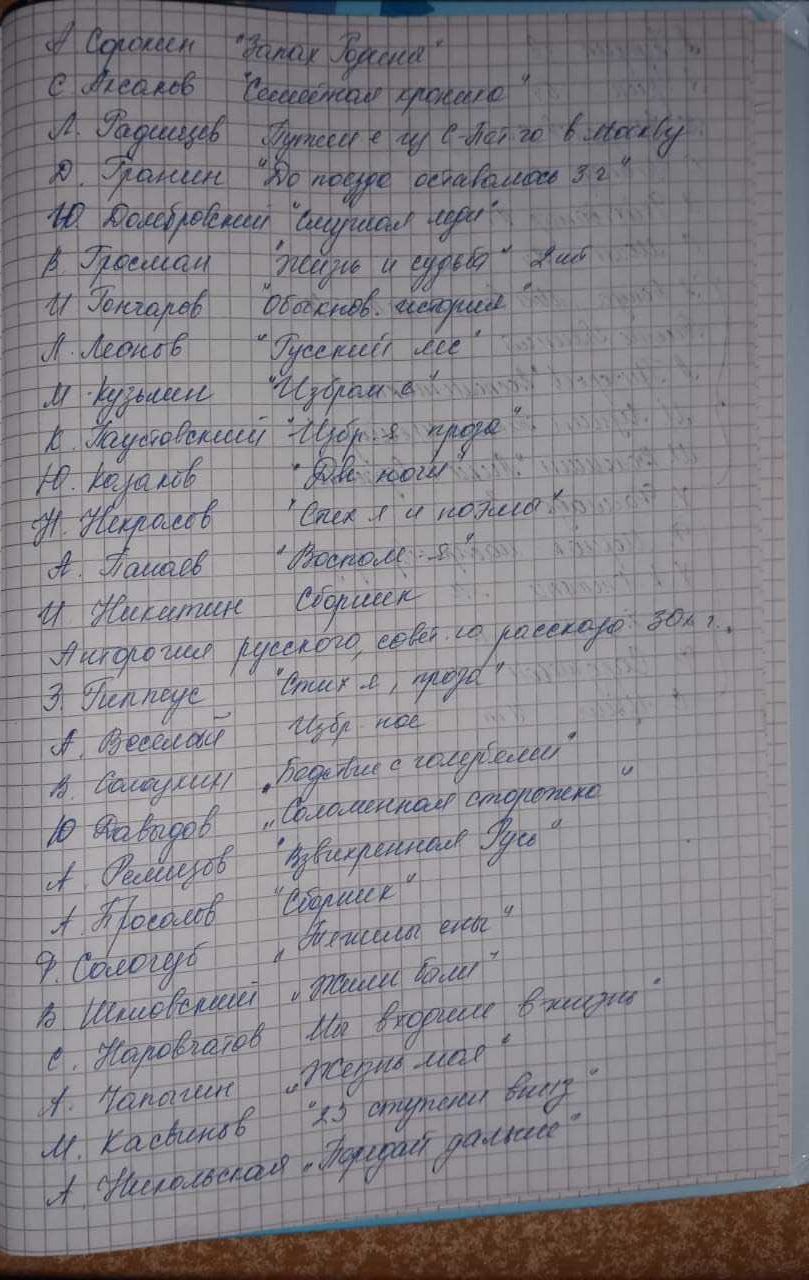 А Сорокин "Запах Родины"
С. Аксаков "Семейная хроника"
Л. Радищев Путеш е из С-Пет-га в Москву
Д. Гранин "До поезда оставалось 3 г"
Ю. Домбровский "Смуглая леди"
В. Гросман "Жизнь и судьба" 2 шт
И Гончаров "Обыкнов. история"
Л. Леонов "Русский лес"
М. Кузьмин "Избран е"
К. Паустовский "Избр. я проза"
Ю. Казаков "Две ночи"
Н. Некрасов "Стих я и поэмы"
А. Панаев "Воспом. я"
И. Никитин Сборник
Антология русского, совет. го рассказа 30х г.
З. Гиппиус "Стих я, проза"
А. Веселый Избр. ное
В. Солоухин "Бедствие с голубями"
Ю Давыдов "Соломенная сторожка"
А. Ремизов "Взвихренная Русь"
А. Прасолов "Сборник"
Ф. Сологуб "Тяжелы сны"
В Шкловский "Жили были"
С. Наровчатов Мы входили в жизнь"
А. Чапыгин "Жизнь моя"
М. Касвинов "23 ступени вниз"
А. Никольская "Передай дальше"